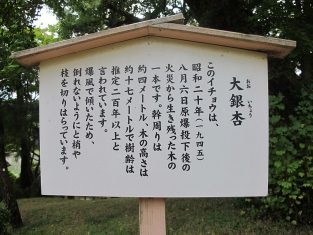 大銀杏
おお いちょう
このイチョウは、
昭和二十年(一九四五)
八月六日原爆投下後の
火災から生き残った木の
一本です。幹周りは
約四メートル、木の高さは
約十七メートルで樹齢は
推定二百年以上と
言われています。
爆風で傾いたため、
倒れないようにと梢や
枝を切りはらっています。